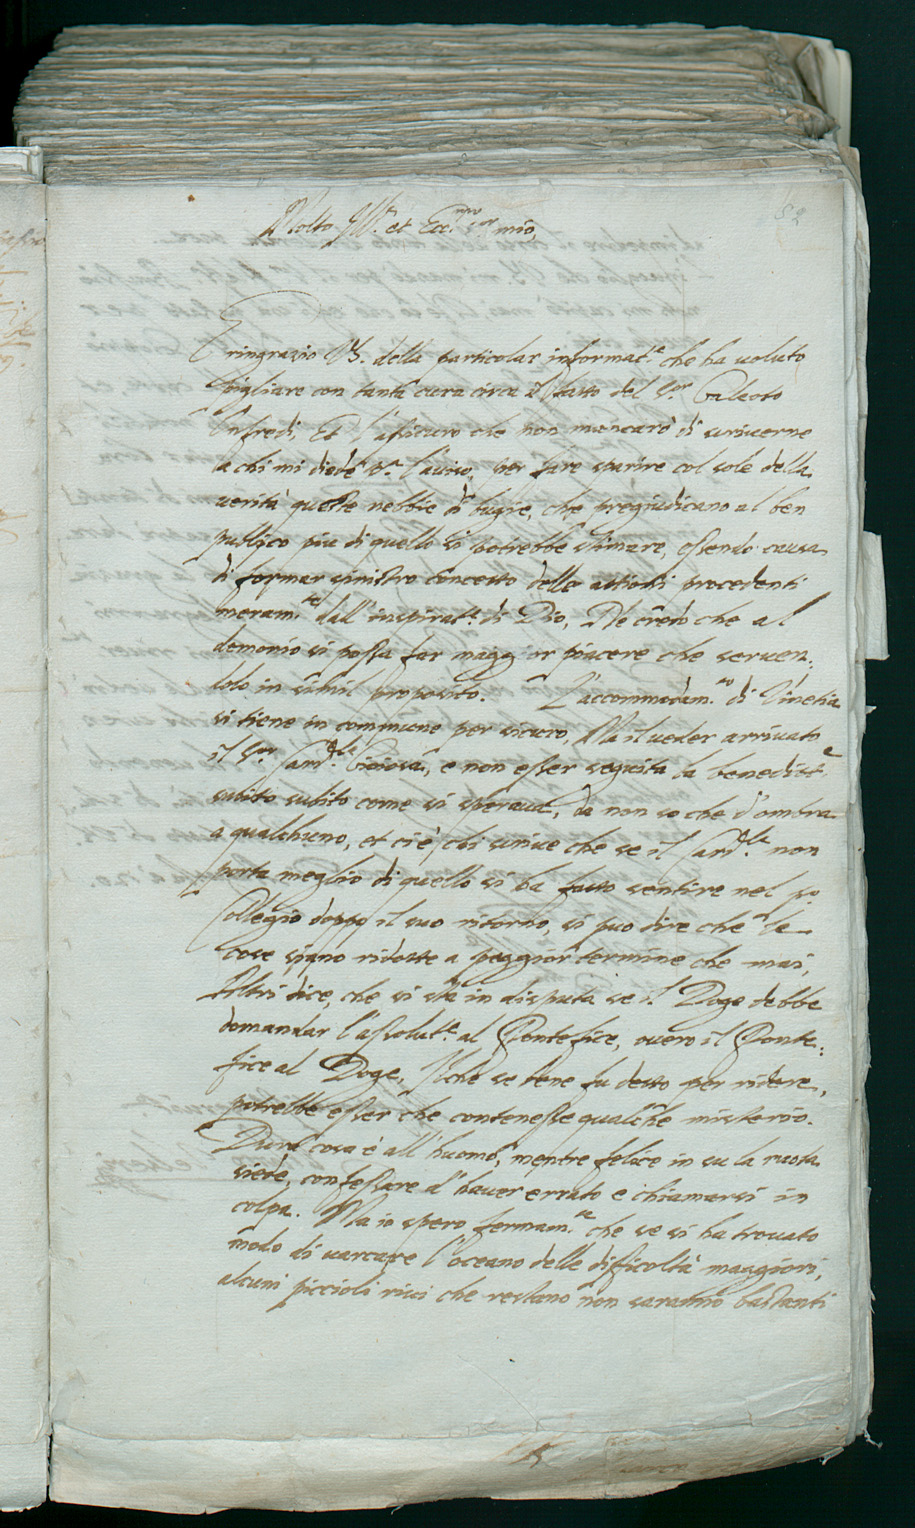 82
Molto Ill.re et Ecc.mo s.or mio,
E ringrazio VS. della particolar informat.e che ha voluto
pigliare con tanta cura circa il fatto del S.or Galeoto
Infredi, Et l'assicuro che non mancarò di scriverne
a chi mi diede l'aviso, per fare sparire col sole della
verità queste nebbie di bugie, che pregiudicano al ben
publico piu di quello si potrebbe stimare, essendo causa
di formar sinistro concetto delle attioni procedenti
meram.te dall'inspirat.e di Dio, Ne credo che al
demonio si possa far maggior piacere che serven:
dolo in simil proposito. L'accommodam.to di Vinetia
si tiene in commune per sicuro, Ma il veder arrivato
il S.or Card.le Gioiosa, e non esser seguita la benedict.e
subito subito come si sperava, da non so che d'ombra
a qualchuno, et ci è chi scrive che se il Card.le non
porta meglio di quello si ha fatto sentire nel
Collegio doppo il suo ritorno, si puo dire che le
cose siano ridotte a peggior termine che mai,
Altri dice, che si stà in disputa se il Doge debbe
domandar l'assolut.e al Pontefice, overo il Ponte:
fice al Doge, Ilche se bene fu detto per ridere,
potrebbe esser che contenesse qualche misterio.
Dura cosa è all'huomo, mentre felice in su la ruota
siede, confessare d'haver errato e chiamarsi in
colpa. Ma io spero fermam.te che se si ha trovato
modo di varcare l'oceano delle difficoltà maggiori,
alcuni piccioli rivi che restano non saranno bastanti